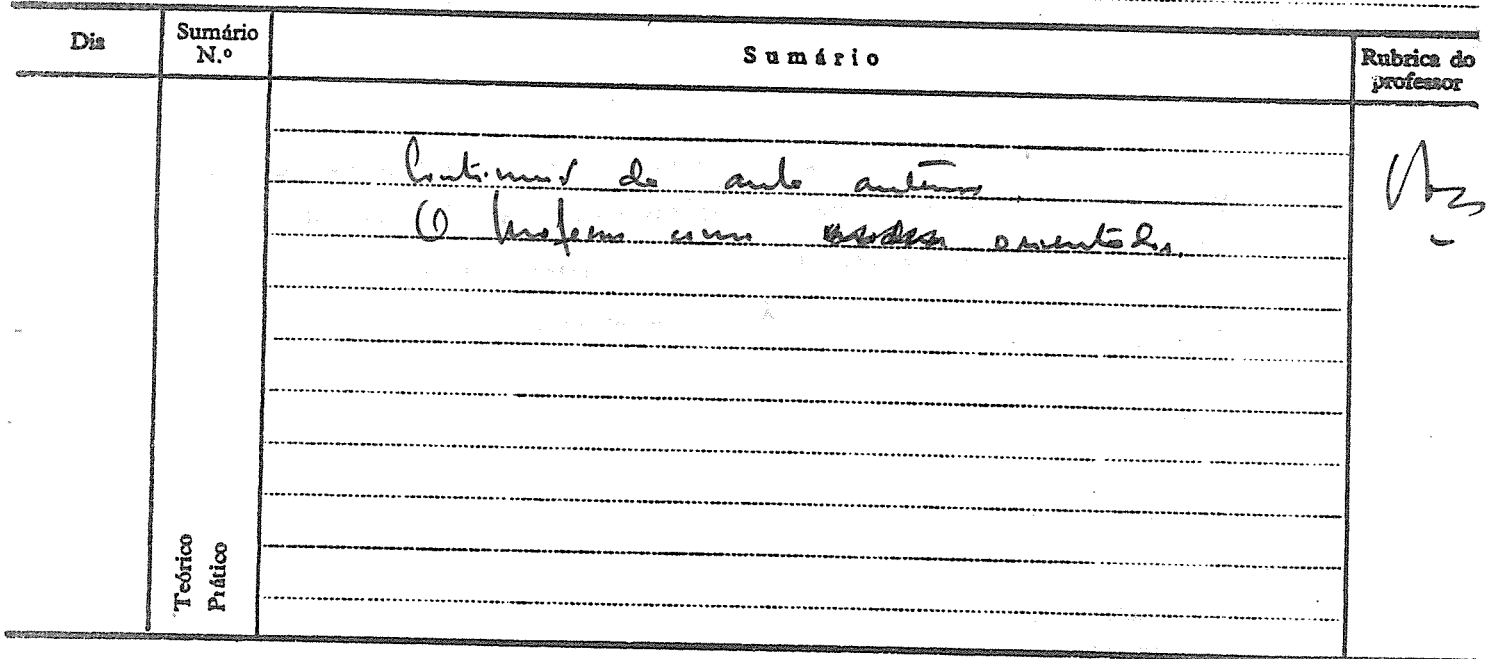 Dia
Sumário N.º
Sumário
Rubrica do professor
Continuação da aula anterior
O professor como orientador.
Teórico
Prático